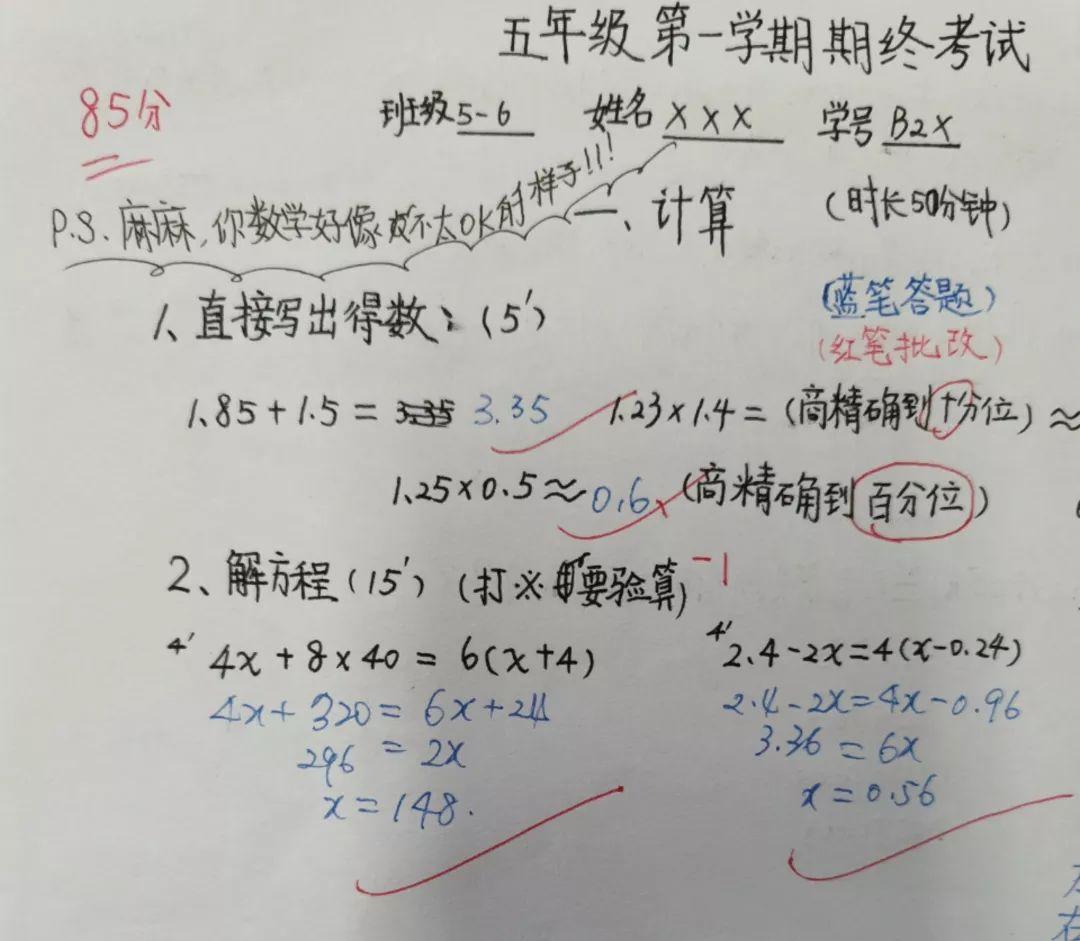 五年级第一学期期终考试
85分
班级5-6 姓名XXX 学号B2X
P.S.麻麻,你数学好像不太OK的样子!!!
一、计算
(时长50分钟)
(蓝笔答题)
(红笔批改)
1、直接写出得数:(5')
1.85+1.5= 3.35 1.23×1.4=(商精确到十分位)≈
1.25×0.5≈0.6 (商精确到百分位)
2、解方程(15')(打※要验算) -1
4' 4x+8×40=6(x+4) 4' 2.4-2x=4(x-0.24)
4x+320=6x+24 2.4-2x=4x-0.96
296=2x 3.36=6x
x=148. x=0.56